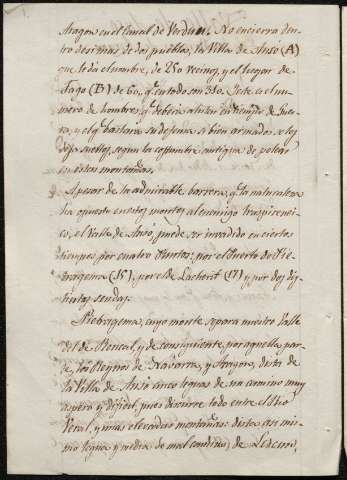 Aragon en el Canal de Verdun. No encierra den
tro de si mas de dos pueblos, la Villa de Anso (A)
que le da el nombre, de 250 vecinos, y el lugar de
Fago (B) de 60, q.e en todo son 310. Este es el nu-
mero de hombres, q.e deberia alistar en tiempo de Gue-
rra, y el q.e bastaria su defensa si bien armados se les
deja sueltos, segun la costumbre antigua de pelear
en estas montañas.
Apesar de la admirable barrera, q.e la naturaleza
ha opuesto en estos montes al enemigo traspirenei-
co, el Valle de Ansó, puede ser invadido en ciertos
tiempos por cuatro Puntos: por el Puerto de Pie-
tragema (15), por el de Lacherit (17) y por dos dis-
tintas sendas.
Petragema, cuyo monte separa nuestro Valle
del de Roncal, y de consiguiente, por aquella par-
te, los Reynos de Navarra, y Aragon, dista de
la Villa de Anso cinco leguas de un camino muy
aspero y dificil, pues discurre todo entre el Rio
Veral, y mas elevadas montañas: dista asi mis-
mo legua y media de mal camino, de Lescun,